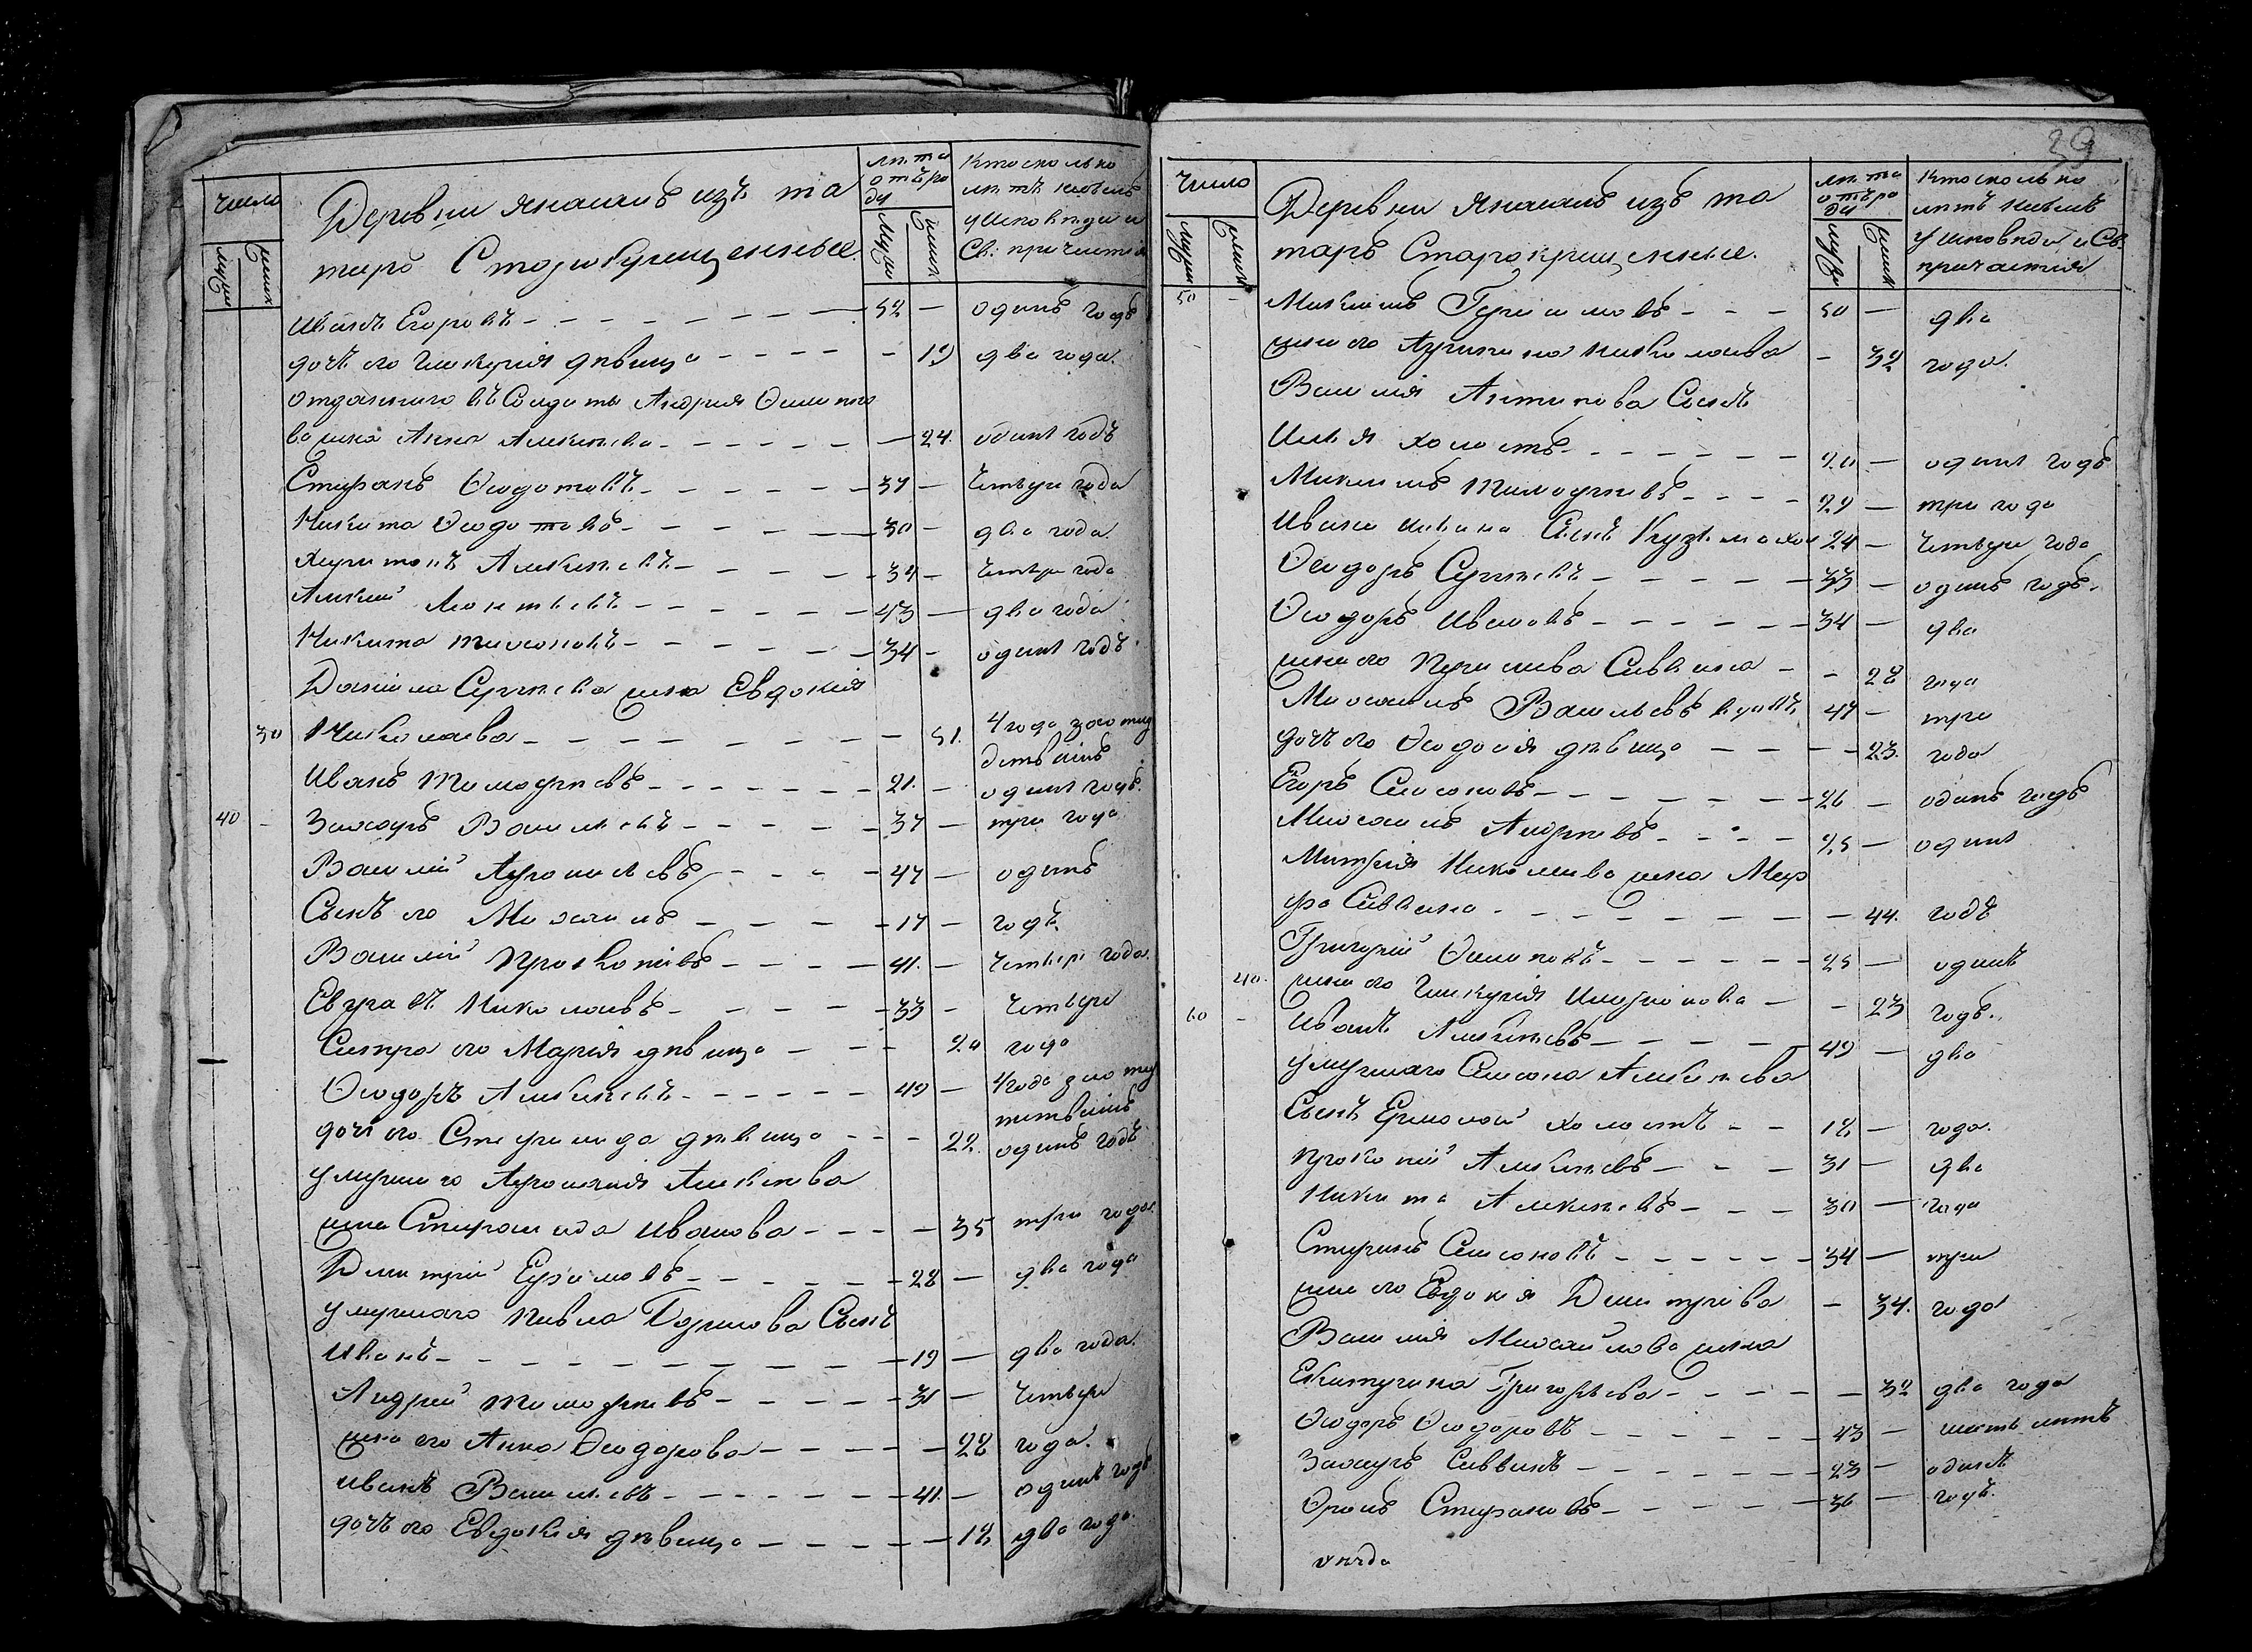 число
Деревни Янашъ изъ та
таръ Старокрещенные.
лѣта
отъ ро
ду
Кто сколько
лѣтъ небылъ
у исповѣди и
Св: причастія
муж
женск
муж
женск
Иванъ Егоровъ 52 — одинъ годъ
дочь его Гликерія дѣвица — 19 два года.
отданнаго въ солдаты Андрея Филипо
ва жена Анна Алексѣева — 24. одинъ годъ
Стефанъ Ѳедотовъ 37 — четыри года
Никита Ѳедотовъ 30 — два года.
Харитонъ Алексѣевъ 39 — четыри года
Алексѣй Леонтьевъ 43 — два года
Никита Тихоновъ 34 — одинъ годъ
Данила Сергѣева жена Евдокія
30 Николаева — 51. 4 года за отлу
Иванъ Тимофѣевъ 21. — одинъ годъ.
40 — Захаръ Васильевъ 37 — три года
Василій Афонасьевъ 47 — одинъ
Сынъ его Михаилъ 17 — годъ.
Василій Прокопьевъ 41. — четыри года.
Евграфъ Николаевъ 33 — четыри
Сестра его Марія дѣвица 20 года
Ѳеодоръ Алексѣевъ 49 — 4 года за отлу
дочь его Степанида дѣвица 22. одинъ годъ
умершаго Афонасія Алексѣева
жена Степанида Иванова — 35 три года.
Дмитрий Ефимовъ 28 — два года
умершаго Павла Герасимова Сынъ
Иванъ 19 — два года.
Андрей Тимофѣевъ 31 — четыри
жена его Анна Ѳеодорова — 28 года.
Иванъ Васильевъ 41. — одинъ годъ
дочь его Евдокія дѣвица — 18 два года.
39
число
Деревни Янашъ изъ та
таръ Старокрещенные.
лѣта
отъ ро
ду
Кто сколько
лѣтъ небылъ
у исповѣди и Св.
причастія
муж
женск
муж
женск
50 — Максимъ Герасимовъ 50 — два
жена его Агрипина Николаева — 32 года.
Василія Антипова Сынъ
Илья холостъ 20 — одинъ годъ
Максимъ Тимофѣевъ 29 — три года
Ивана Сынъ Кузьма хол 24 — четыри года
Ѳеодоръ Сергѣевъ 33 — одинъ годъ.
Ѳеодоръ Ивановъ 34 — два
жена его Савельева — 28 года
Михаилъ Васильевъ вдовъ 47 — три
дочь его Ѳедосія дѣвица — 23. года
Егоръ Семеновъ 26 — одинъ годъ
Михаилъ Андреевъ 25 — одинъ
Митрія Николаева жена Мар
фа Савельева — 44. годъ
Григорій Филиповъ 25 — одинъ
40. жена его Гликерія — 23 годъ.
60 — Иванъ Алексѣевъ 49 — два
умершаго Семена Алексѣева
Сынъ Ермолай холостъ 18 — года.
Прокопій Алексѣевъ 31 — два
Никита Алексѣевъ 30 — года
Стефанъ Семеновъ 34 — три
жена его Евдокія Дмитріева — 34. года
Василія Михайлова жена
Екатерина Григорьева — 32 два года
Ѳеодоръ Ѳеодоровъ 43 — шесть лѣтъ
Захаръ Савельевъ 23 — одинъ
Стефановъ 36 — годъ.